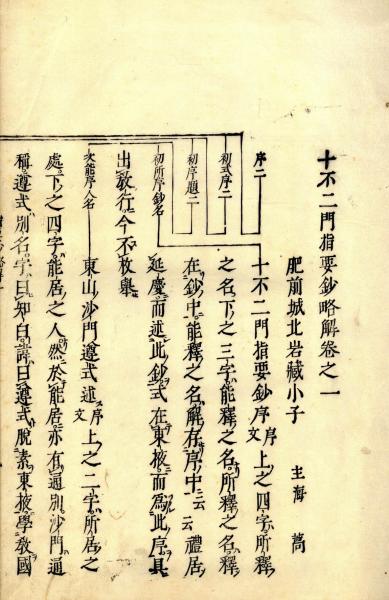 十不二門指要鈔略解卷之一
肥前城北岩藏小子 主海 蒿
序二
十不二門指要鈔序序文上之四字所釋
初式序二
之名下之三字能釋之名所釋之名釋
初序題二
在鈔中能釋之名解存序中云云禮居
初所序鈔名
延慶而述此鈔式在東掖而為此序具
出教行今不枚舉
次能序人名
東山沙門遵式述序文上之二字所居之
處下之四字能居之人然於能居亦有通別沙門通
稱遵式別名字曰知白諱曰遵式脫素東掖學教國